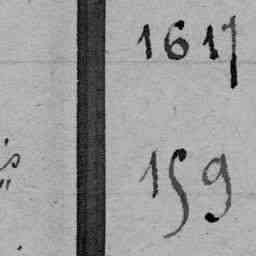 1617
159